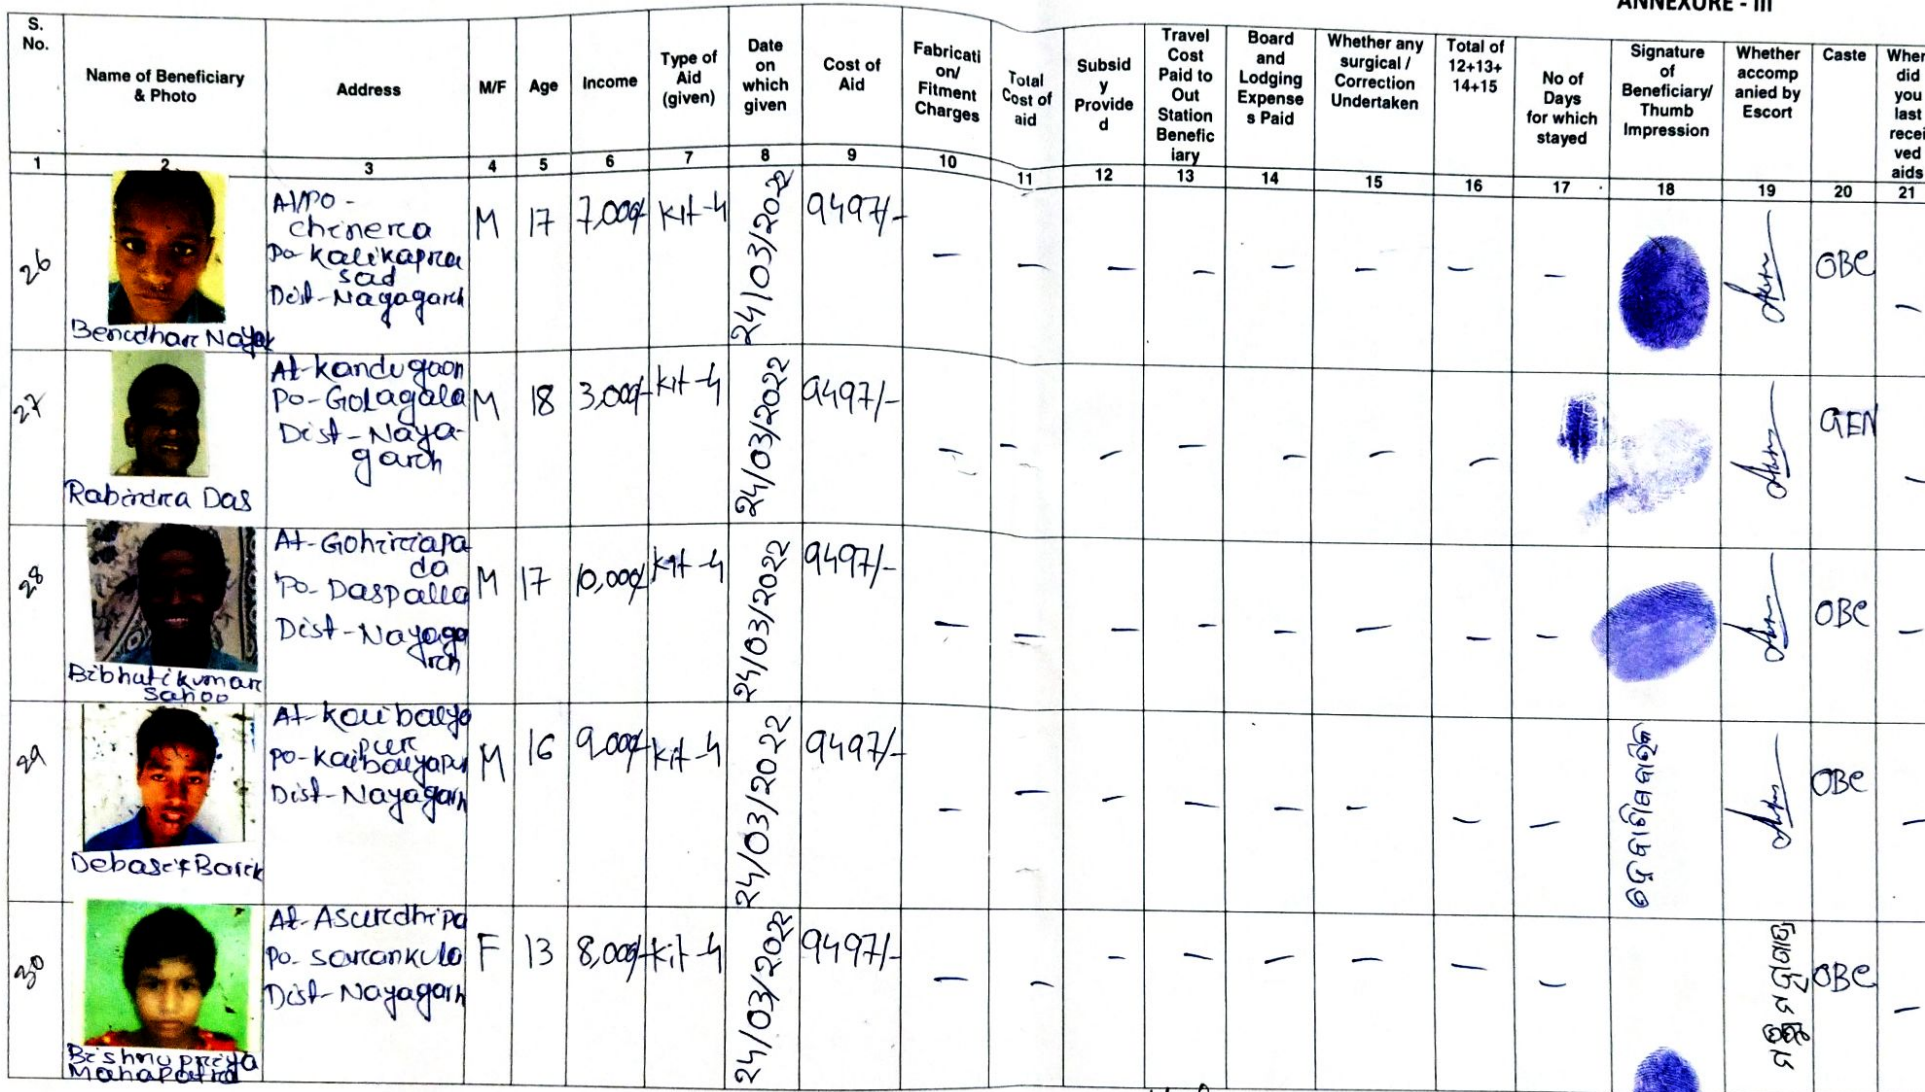 ANNEXURE - III
S. No. Name of Beneficiary & Photo Address M/F Age Income Type of Aid (given) Date on which given Cost of Aid Fabricati on/ Fitment Charges Total Cost of aid Subsid y Provide d Travel Cost Paid to Out Station Benefic iary Board and Lodging Expense s Paid Whether any surgical / Correction Undertaken Total of 12+13+ 14+15 No of Days for which stayed Signature of Beneficiary/ Thumb Impression Whether accomp anied by Escort Caste When did you last recei ved aids
1 2 3 4 5 6 7 8 9 10 11 12 13 14 15 16 17 18 19 20 21
26
Benudhar Nayak
At/PO -
chinera
Po Kalikapra
sad
Dist-Nayagarh
M 17 7,000/- kit-4 24/03/2022 9497/- — — — — — — — — OBC
27
Rabindra Das
At-kandugaon
Po-Golagala
Dist-Naya-
garh
M 18 3,000/- kit-4 24/03/2022 9497/- — — — — — — — GEN
28
Bibhuti kumar
Sahoo
At-Gohiriapa
da
Po-Daspalla
Dist-Nayaga
rh
M 17 10,000/- kit-4 24/03/2022 9497/- — — — — — — — — OBC —
29
Debasis Barik
At-Kaibalya
pur
Po-Kaibalyapur
Dist-Nayagarh
M 16 9,000/- kit-4 24/03/2022 9497/- — — — — — — — — OBC —
30
Bishnupriya
Mahapatra
At-Asurdhipa
Po-Sarankula
Dist-Nayagarh
F 13 8,000/- kit-4 24/03/2022 9497/- — — — — — — — — OBC —